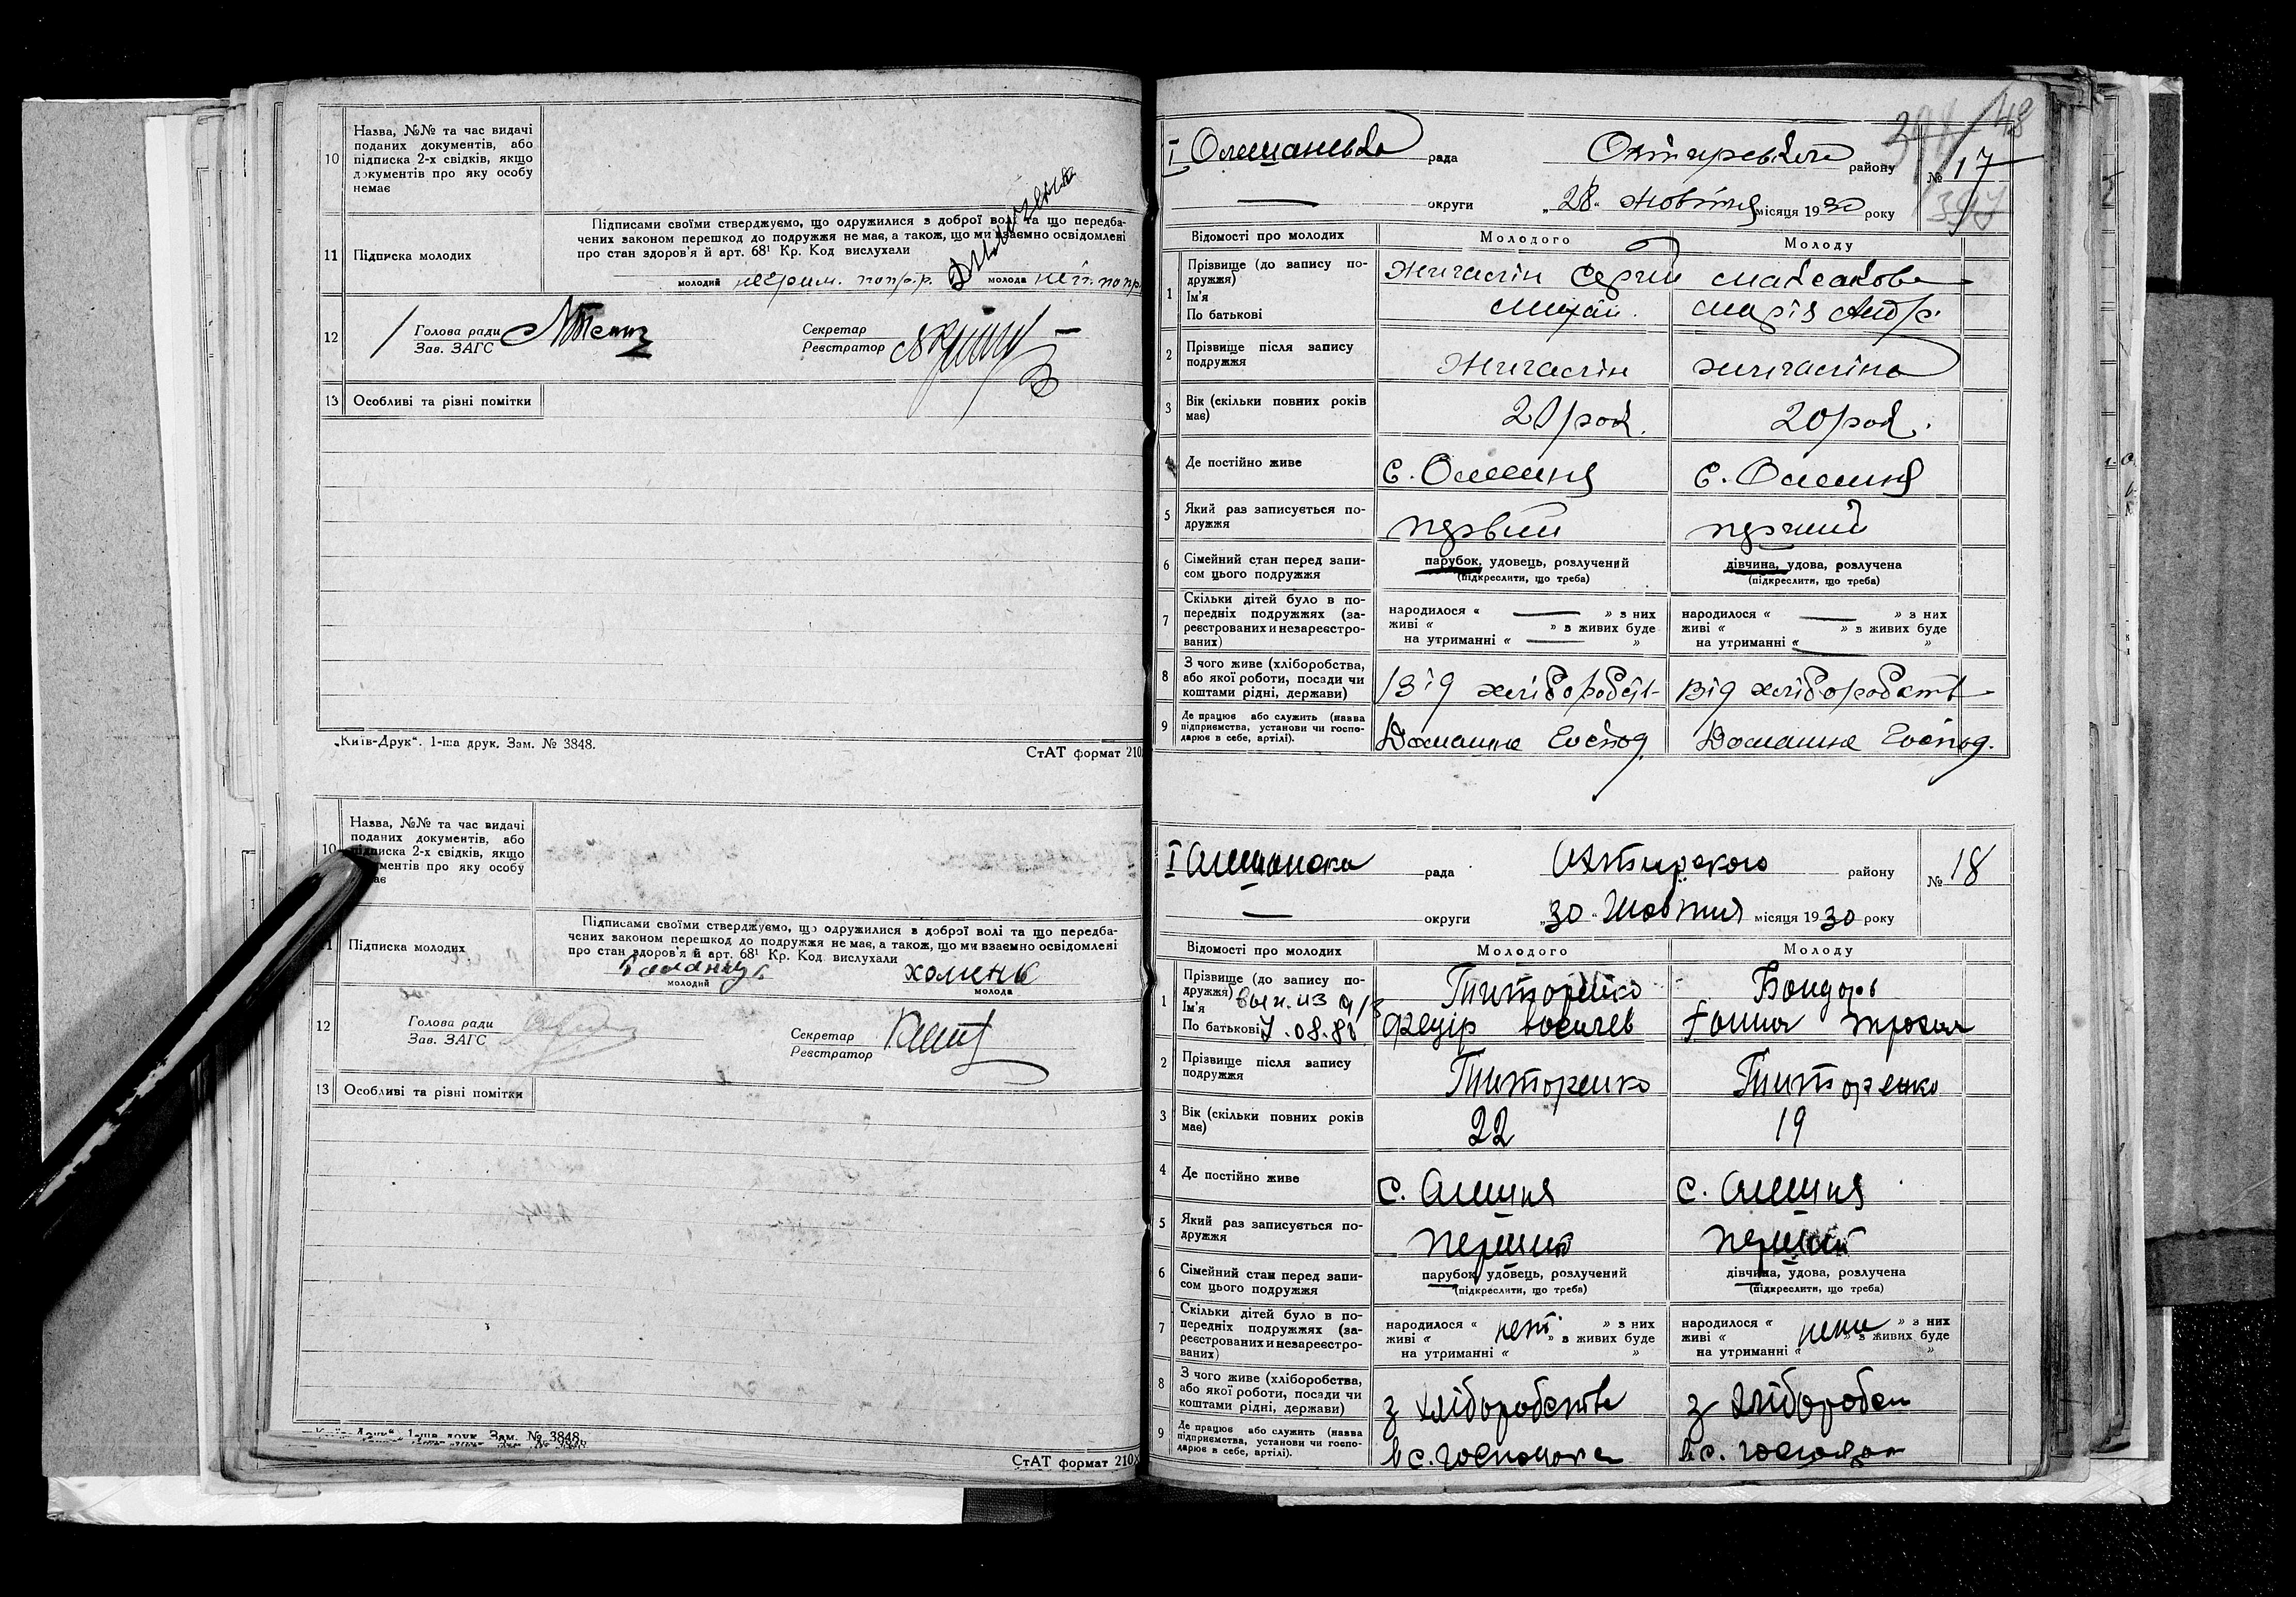 10 Назва, №№ та час видачі
поданих документів, або
підписка 2-х свідків, якщо
документів про яку особу
немає
11 Підписка молодих
Підписами своїми стверджуємо, що одружилися з доброї волі та що передба-
чених законом перешкод до подружжя не має, а також, що ми взаємно освідомлені
про стан здоров'я й арт. 68¹ Кр. Код вислухали
молодий
молода
12 Голова ради
Зав. ЗАГС
Секретар
Реєстратор
13 Особливі та різні помітки
„Київ-Друк“. 1-ша друк. Зам. № 3848.
СтАТ формат 210
10 Назва, №№ та час видачі
поданих документів, або
підписка 2-х свідків, якщо
ментів про яку особу
ає
Підписка молодих
Підписами своїми стверджуємо, що одружилися в доброї волі та що передба-
чених законом перешкод до подружжя не має, а також, що ми взаємно освідомлені
про стан здоров'я й арт. 68¹ Кр. Код вислухали
молодий
молода
12 Голова ради
Зав. ЗАГС
Секретар
Реєстратор
13 Особливі та різні помітки
1-ша друк. Зам. № 3848.
СтАТ формат 210
I рада району № 17
округи „28“ жовтня місяця 1930 року
Відомості про молодих Молодого Молоду
1 Прізвище (до запису по-
дружжя)
Ім'я
По батькові
Жигаслін Сергій
Михай. Марія Андр.
2 Прізвище після запису
подружжя
Жигаслін Жигасліна
3 Вік (скільки повних років
має)
20 рок. 20 рок.
4 Де постійно живе с. Олешня с. Олешня
5 Який раз записується по-
дружжя
первий перший
6 Сімейний стан перед запи-
сом цього подружжя
парубок, удовець, розлучений
(підкреслити, що треба)
дівчина, удова, розлучена
(підкреслити, що треба)
7 Скільки дітей було в по-
передніх подружжях (за-
реєстрованих и незареєстро-
ваних)
народилося « » з них
живі « » в живих буде
на утриманні « »
народилося « » з них
живі « » в живих буде
на утриманні « »
8 З чого живе (хліборобства,
або якої роботи, посади чи
коштами рідні, держави)
Від хліборобст Від хліборобств
9 Де працює або служить (назва
підприємства, установи чи госпо-
дарює в себе, артілі).
Домашне Господ. Домашне Господ.
I рада Охтирского району № 18
округи „30“ Жовтня місяця 1930 року
Відомості про молодих Молодого Молоду
1 Прізвище (до запису по-
дружжя)
Ім'я
По батькові
Титоренко Бондарь
Федір Ганна
2 Прізвище після запису
подружжя
Титоренко Титоренко
3 Вік (скільки повних років
має)
22 19
4 Де постійно живе с. Олешня с. Олешня
5 Який раз записується по-
дружжя
перший перший
6 Сімейний стан перед запи-
сом цього подружжя
парубок, удовець, розлучений
(підкреслити, що треба)
дівчина, удова, розлучена
(підкреслити, що треба)
7 Скільки дітей було в по-
передніх подружжях (за-
реєстрованих и незареєстро-
ваних)
народилося « » з них
живі « нет » в живих буде
на утриманні « »
народилося « » з них
живі « » з живих буде
на утриманні « »
8 З чого живе (хліборобства,
або якої роботи, посади чи
коштами рідні, держави)
з хліборобства з хліборобст
9 Де працює або служить (назва
підприємства, установи чи госпо-
дарює в себе, артілі).